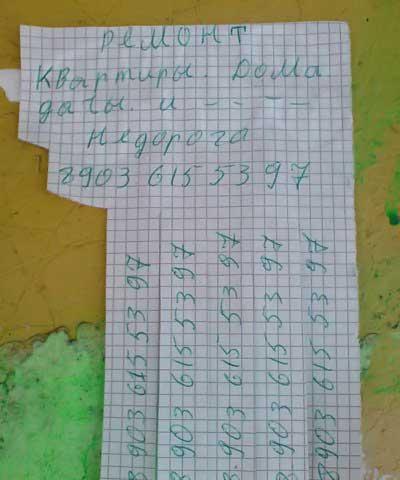 РЕМОНТ
Квартиры. Дома
дачы. и - - - -
Недорога
8903 615 53 97
8 903 615 53 97
8 903 615 53 97
8.903 615 53 97
8 903 615 53 97
8903 615 53 97